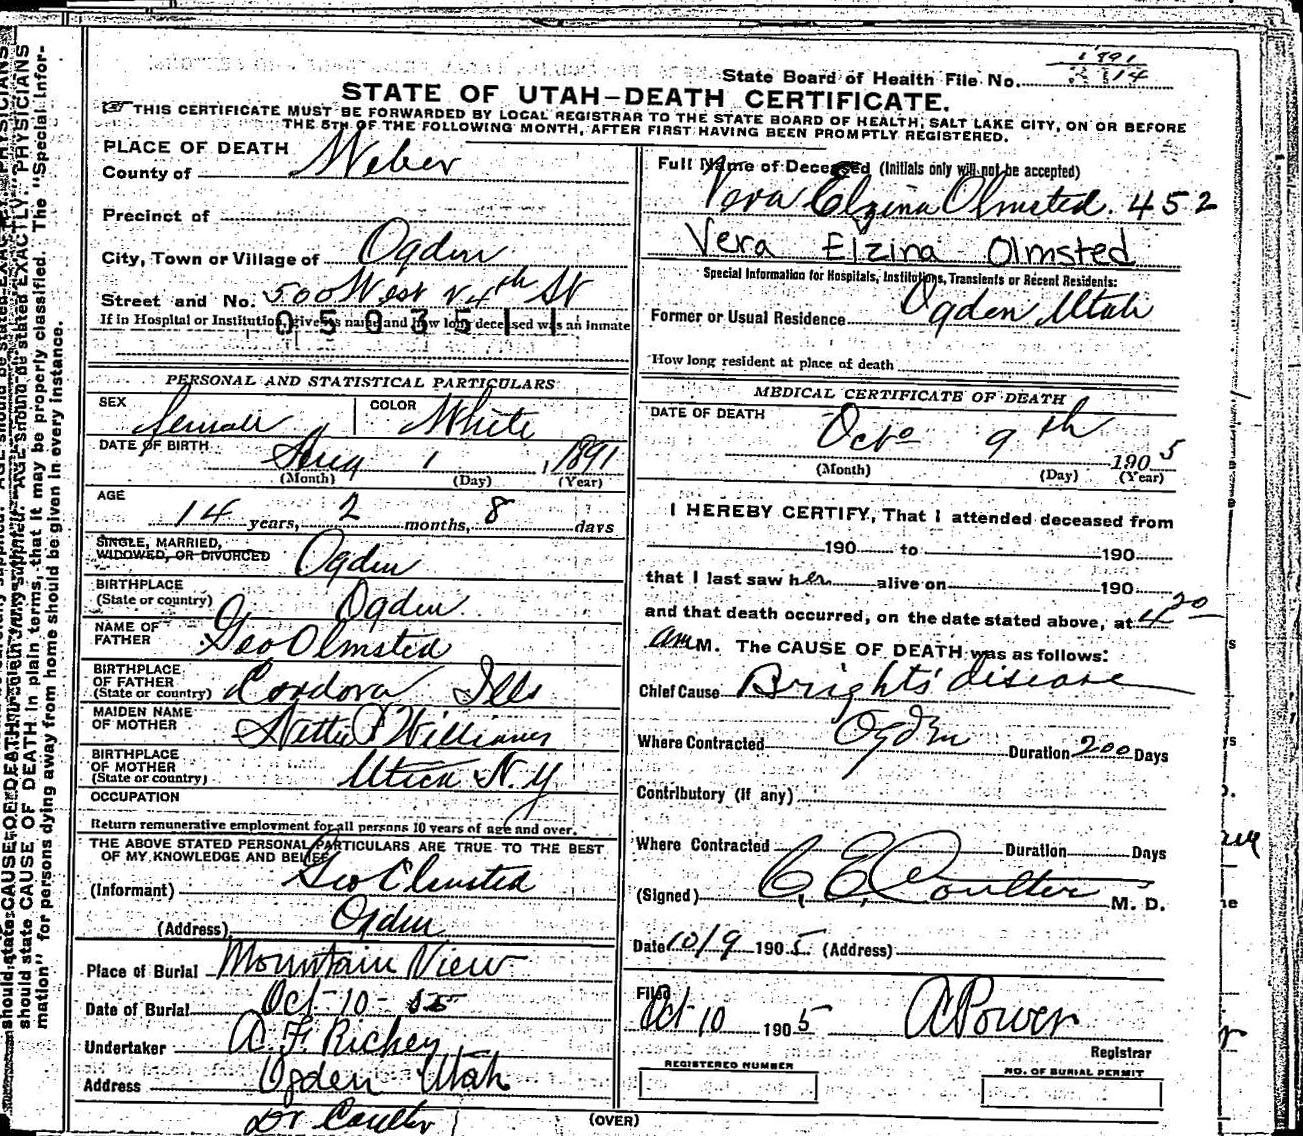 State Board of Health File No. 1891
2114
STATE OF UTAH–DEATH CERTIFICATE.
THIS CERTIFICATE MUST BE FORWARDED BY LOCAL REGISTRAR TO THE STATE BOARD OF HEALTH, SALT LAKE CITY, ON OR BEFORE
THE 5TH OF THE FOLLOWING MONTH, AFTER FIRST HAVING BEEN PROMPTLY REGISTERED.
PLACE OF DEATH
County of Weber
Precinct of
City, Town or Village of Ogden
Street and No. 500 West 24th St
If in Hospital or Institution, give its name and how long deceased was an inmate
0503511
PERSONAL AND STATISTICAL PARTICULARS
SEX female COLOR White
DATE OF BIRTH Aug 1, 1891
(Month) (Day) (Year)
AGE
14 years, 2 months, 8 days
SINGLE, MARRIED,
WIDOWED, OR DIVORCED Ogden
BIRTHPLACE
(State or country) Ogden
NAME OF
FATHER Geo Olmsted
BIRTHPLACE
OF FATHER
(State or country) Cordova Ills
MAIDEN NAME
OF MOTHER Nettie P Williams
BIRTHPLACE
OF MOTHER
(State or country) Utica N.Y
OCCUPATION
Return remunerative employment for all persons 10 years of age and over.
THE ABOVE STATED PERSONAL PARTICULARS ARE TRUE TO THE BEST
OF MY KNOWLEDGE AND BELIEF
(Informant) Geo Olmsted
(Address) Ogden
Place of Burial Mountain View
Date of Burial Oct-10-
Undertaker A. F. Richey
Address Ogden Utah
Dr Coulter
Full Name of Deceased (Initials only will not be accepted)
Vera Elzina Olmsted. 452
Vera Elzina Olmsted
Special Information for Hospitals, Institutions, Transients or Recent Residents:
Former or Usual Residence Ogden Utah
How long resident at place of death
MEDICAL CERTIFICATE OF DEATH
DATE OF DEATH
Octo 9th 1905
(Month) (Day) (Year)
I HEREBY CERTIFY, That I attended deceased from
190 to 190
that I last saw her alive on 190
and that death occurred, on the date stated above, at 4 20
am M. The CAUSE OF DEATH was as follows:
Chief Cause Brights' disease
Where Contracted Ogden Duration 200 Days
Contributory (if any)
Where Contracted Duration Days
(Signed) C. E. Coulter M. D.
Date 10/9 1905 (Address)
Filed
Oct-10 1905 A Power
Registrar
REGISTERED NUMBER
NO. OF BURIAL PERMIT
(OVER)
should state CAUSE OF DEATH in plain terms, that it may be properly classified. The "Special Infor-
mation" for persons dying away from home should be given in every instance.